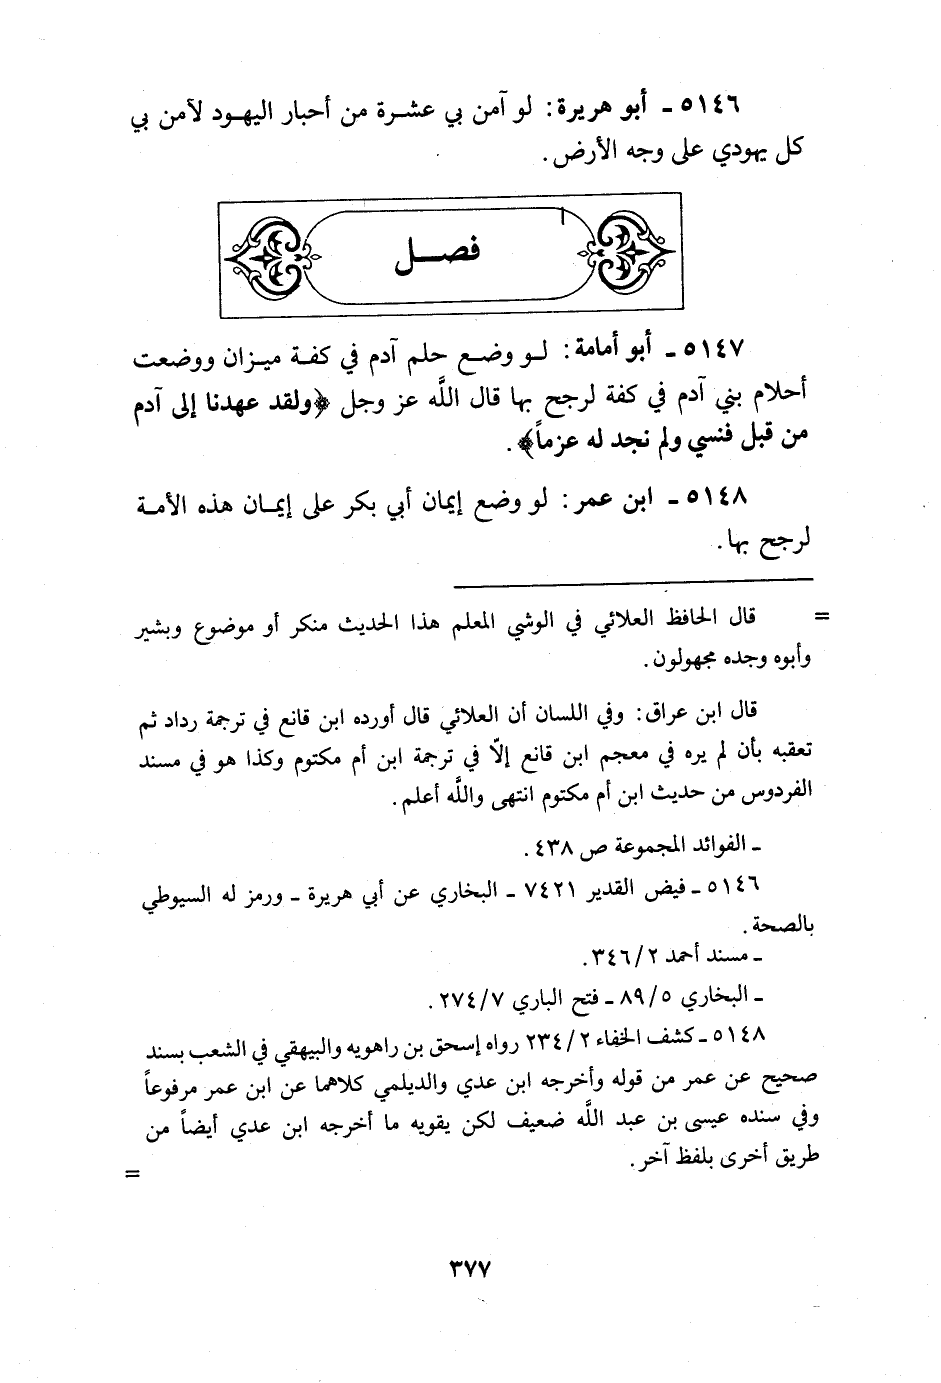 ٥١٤٦ ـ أبو هريرة: لو آمن بي عشرة من أحبار اليهود لآمن بي
كل يهودي على وجه الأرض.
فصل
٥١٤٧ ـ أبو أمامة: لو وضع حلم آدم في كفة ميزان ووضعت
أحلام بني آدم في كفة لرجح بها قال اللَّه عز وجل ﴿ولقد عهدنا إلى آدم
من قبل فنسي ولم نجد له عزماً﴾.
٥١٤٨ ـ ابن عمر: لو وضع إيمان أبي بكر على إيمان هذه الأمة
لرجح بها.
= قال الحافظ العلائي في الوشي المعلم هذا الحديث منكر أو موضوع وبشير
وأبوه وجده مجهولون.
قال ابن عراق: وفي اللسان أن العلائي قال أورده ابن قانع في ترجمة رداد ثم
تعقبه بأن لم يره في معجم ابن قانع إلّا في ترجمة ابن أم مكتوم وكذا هو في مسند
الفردوس من حديث ابن أم مكتوم انتهى واللَّه أعلم.
ـ الفوائد المجموعة ص ٤٣٨.
٥١٤٦ ـ فيض القدير ٧٤٢١ ـ البخاري عن أبي هريرة ـ ورمز له السيوطي
بالصحة.
ـ مسند أحمد ٣٤٦/٢.
ـ البخاري ٨٩/٥ ـ فتح الباري ٢٧٤/٧.
٥١٤٨ ـ كشف الخفاء ٢٣٤/٢ رواه إسحق بن راهويه والبيهقي في الشعب بسند
صحيح عن عمر من قوله وأخرجه ابن عدي والديلمي كلاهما عن ابن عمر مرفوعاً
وفي سنده عيسى بن عبد اللَّه ضعيف لكن يقويه ما أخرجه ابن عدي أيضاً من
طريق أخرى بلفظ آخر. =
٣٧٧